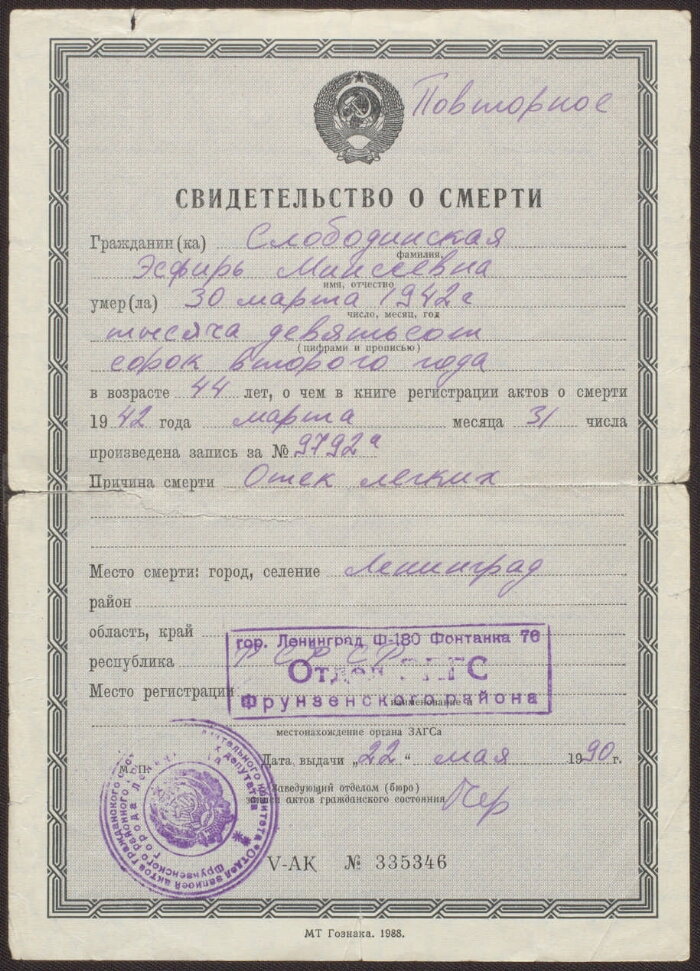 Повторное
СВИДЕТЕЛЬСТВО О СМЕРТИ
Гражданин(ка) Слободинская
фамилия,
Эсфирь Моисеевна
имя, отчество
умер(ла) 30 марта 1942 г
число, месяц, год
тысяча девятьсот
(цифрами и прописью)
сорок второго года
в возрасте 44 лет, о чем в книге регистрации актов о смерти
1942 года марта месяца 31 числа
произведена запись за № 9792а
Причина смерти Отек легких
Место смерти: город, селение Ленинград
район
область, край
гор. Ленинград Ф-180 Фонтанка 76
республика РСФСР
Отдел ЗАГС
Место регистрации
наименование и
Фрунзенского района
местонахождение органа ЗАГСа
Дата выдачи „22" мая 1990 г.
Заведующий отделом (бюро)
записи актов гражданского состояния
V-АК № 335346
МТ Гознака. 1988.